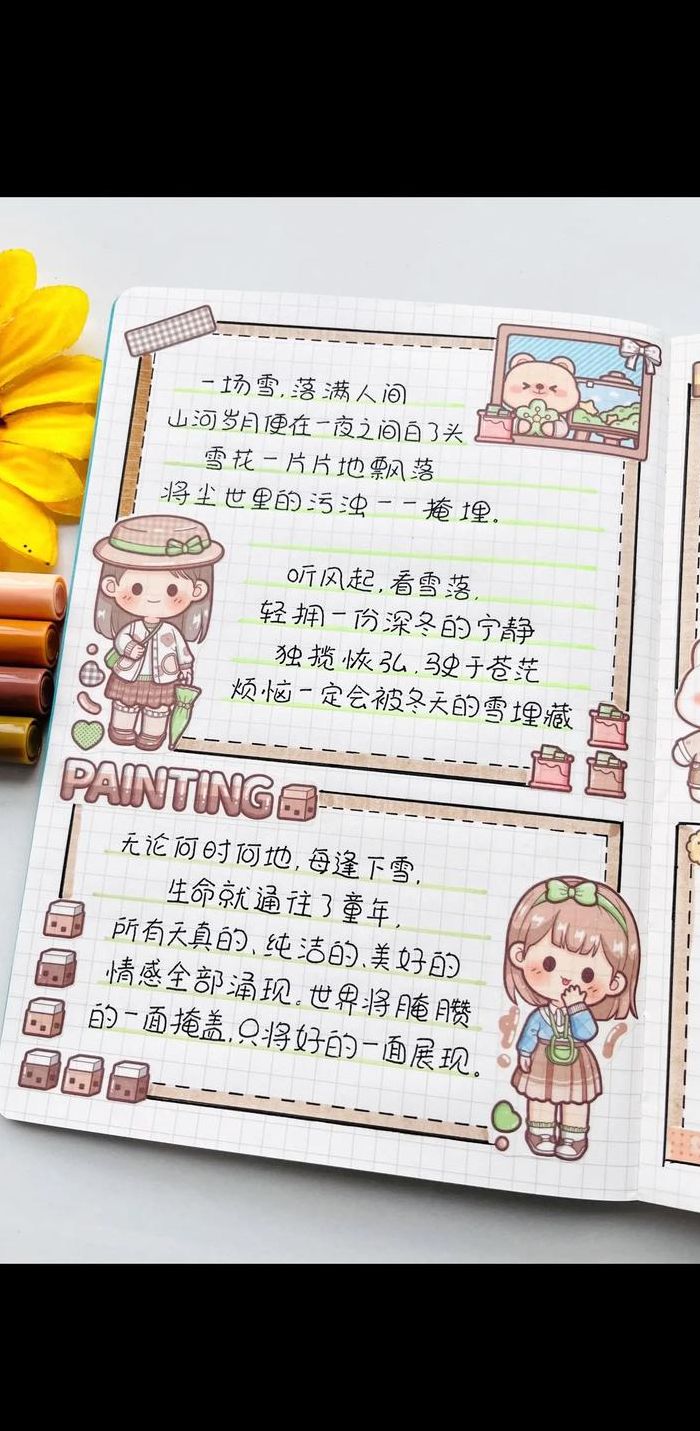 一场雪,落满人间
山河岁月便在一夜之间白了头
雪花一片片地飘落
将尘世里的污浊一一掩埋。
听风起,看雪落,
轻拥一份深冬的宁静
独揽恢弘,驶于苍茫
烦恼一定会被冬天的雪埋藏
PAINTING
无论何时何地,每逢下雪,
生命就通往了童年,
所有天真的、纯洁的、美好的
情感全部涌现。世界将腌臜
的一面掩盖,只将好的一面展现。